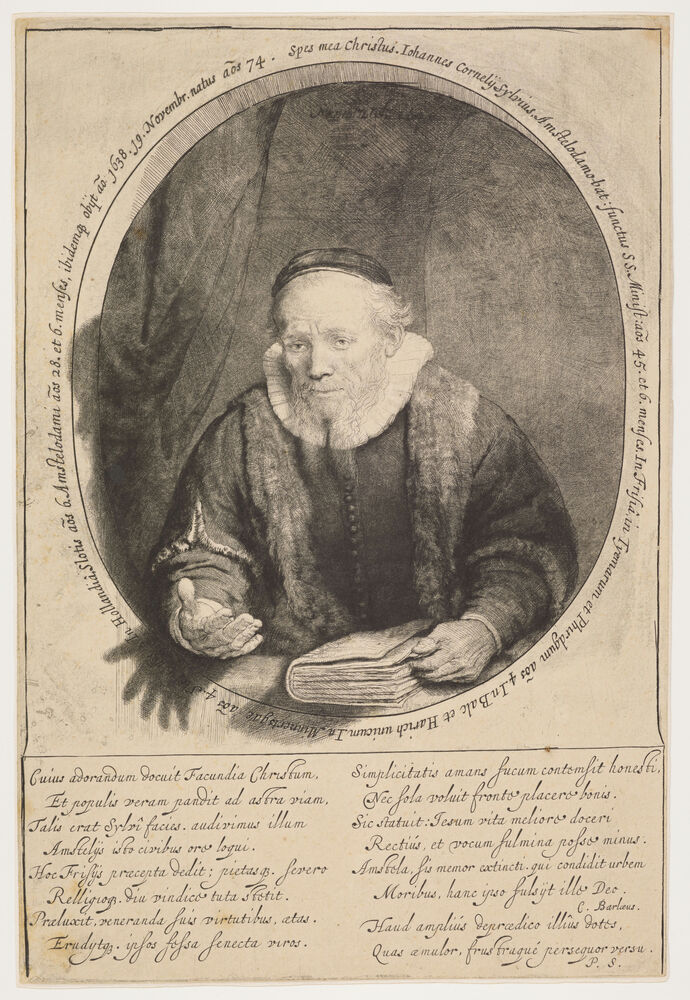 Spes mea Christus. Iohannes Cornelÿ Sylvius, Amstelodamo-bat: functus S S. Minist: aõs 45. et 6. menses. In Frisia, in Tyemarum et Phirdgum aõs 4. In Balc et Harich unicum. In Minnertsgae, aõs 4. In Hollandia, Slotis aõs 6. Amstelodami aõs 28. et 6. menses, ibidemq obÿt aõ. 1638. 19. Novembr. natus aõs 74.
Cuius adorandum docuit Facundia Christum,
Et populis veram pandit ad astra viam,
Talis erat Sylvî facies. audivimus illum
Amstelÿs isto civibus ore loqui.
Hoc Frisÿs præcepta dedit; pietasq. severo
Relligioq. diu vindice tuta stetit.
Præluxit, veneranda suis virtutibus, ætas.
Erudytq. ipsos fessa senecta viros.
Simplicitatis amans fucum contemsit honesti,
Nec sola voluit fronte placere bonis.
Sic statuit: Iesum vita meliore doceri
Rectiùs, et vocum fulmina posse minus.
Amstela, sis memor extincti. qui condidit urbem
Moribus, hanc ipso fulsÿt ille Deo.
C. Barlæus.
Haud ampliùs deprædico illîus dotes,
Quas æmulor, frustraque persequor versu.
P. S.